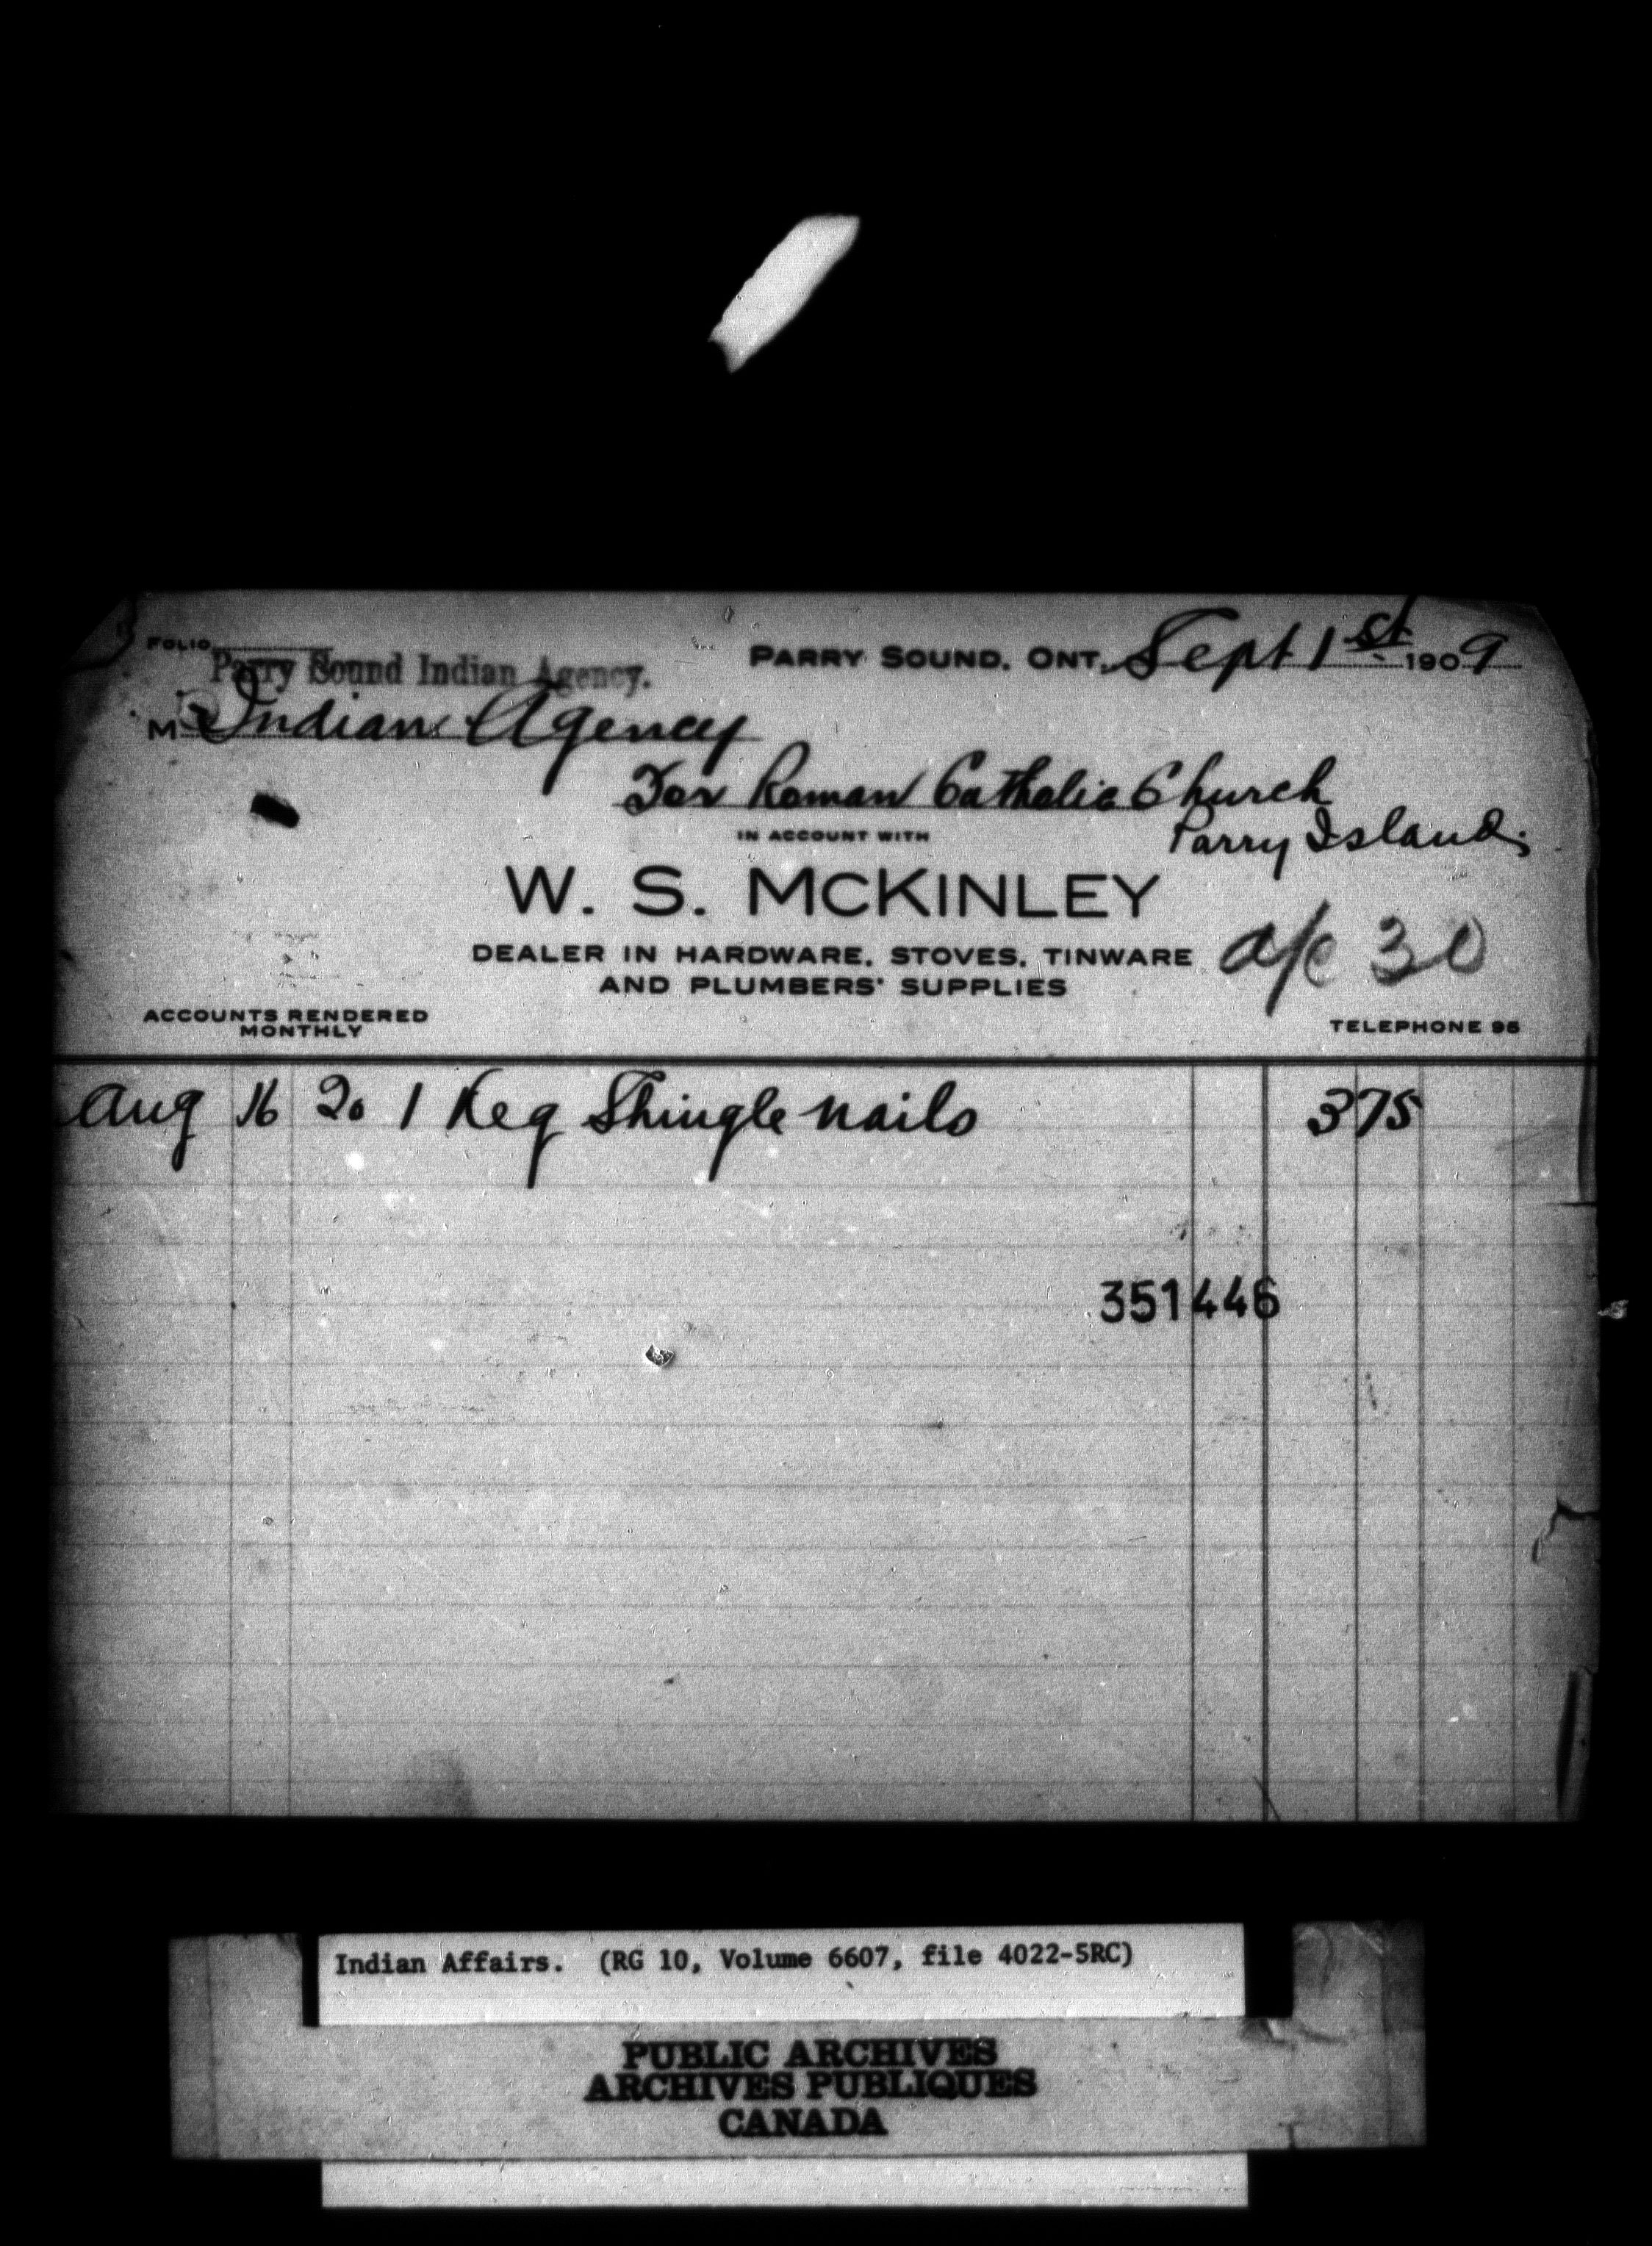 FOLIO
PARRY SOUND, ONT. Sept 1st 1909
Parry Sound Indian Agency.
M Indian Agency
For Roman Catholic Church
Parry Island
IN ACCOUNT WITH
W. S. McKINLEY
DEALER IN HARDWARE, STOVES, TINWARE
AND PLUMBERS' SUPPLIES
a/c 30
ACCOUNTS RENDERED
MONTHLY
TELEPHONE 95
Aug 16 20 1 Keg Shingle nails 3 75
351446
Indian Affairs. (RG 10, Volume 6607, file 4022-5RC)
PUBLIC ARCHIVES
ARCHIVES PUBLIQUES
CANADA